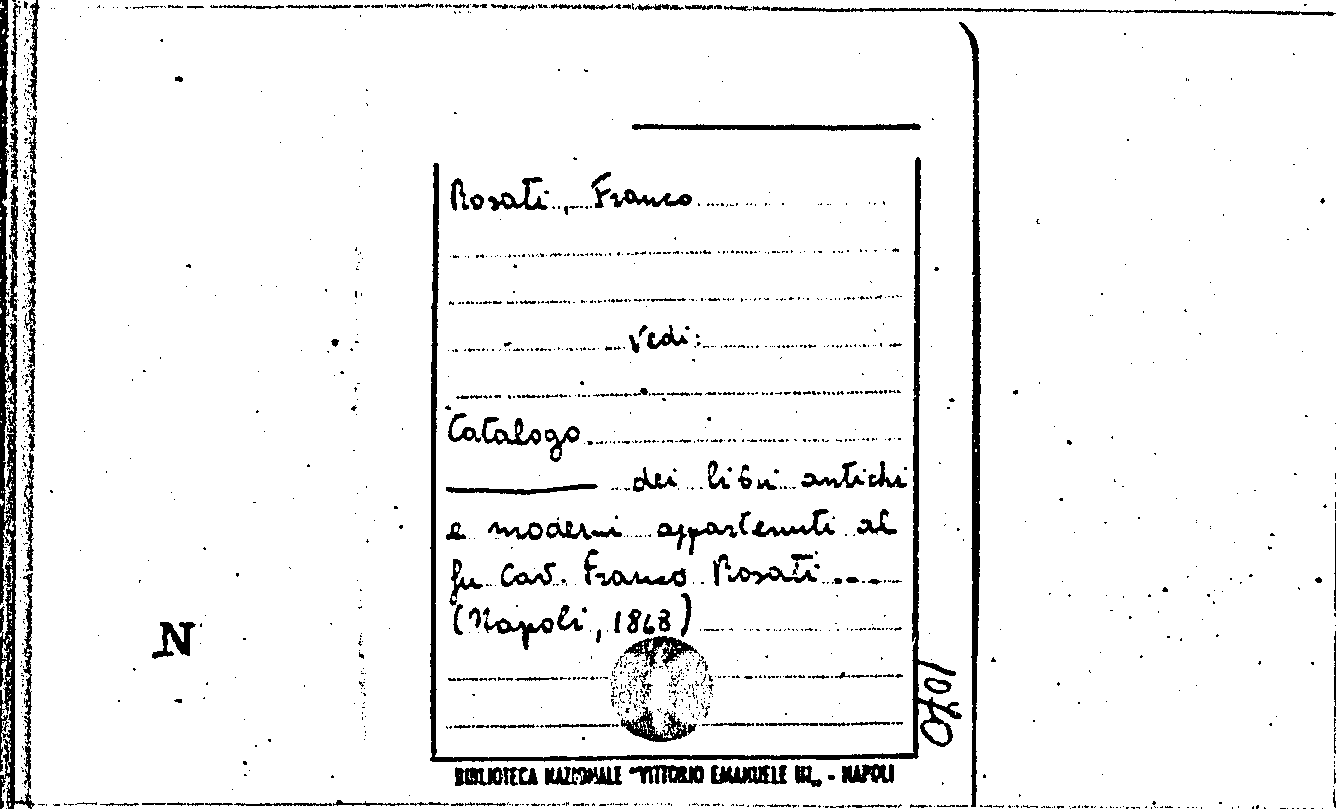 Rosati, Franco
Vedi:
Catalogo
dei libri antichi
e moderni appartenuti al
fu Cav. Franco Rosati ....
(Napoli, 1868)
N
1070
BIBLIOTECA NAZIONALE "VITTORIO EMANUELE III„ - NAPOLI